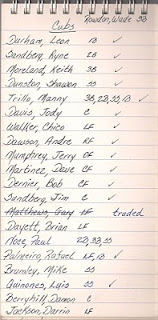 Rowdon, Wade 3B
Cubs
Durham, Leon 1B ✓
Sandberg, Ryne 2B ✓
Moreland, Keith 3B ✓
Dunston, Shawon SS ✓
Trillo, Manny 3B, 2B, SS, 1B ✓
Davis, Jody C ✓
Walker, Chico LF ✓
Dawson, Andre RF ✓
Mumphrey, Jerry CF ✓
Martinez, Dave CF ✓
Dernier, Bob CF ✓
Sundberg, Jim C ✓
Matthews, Gary LF traded
Dayett, Brian LF
Noce, Paul 2B, 3B, SS
Palmeiro, Rafael LF, 1B ✓
Brumley, Mike SS
Quinones, Luis SS ✓
Berryhill, Damon C
Jackson, Darrin LF